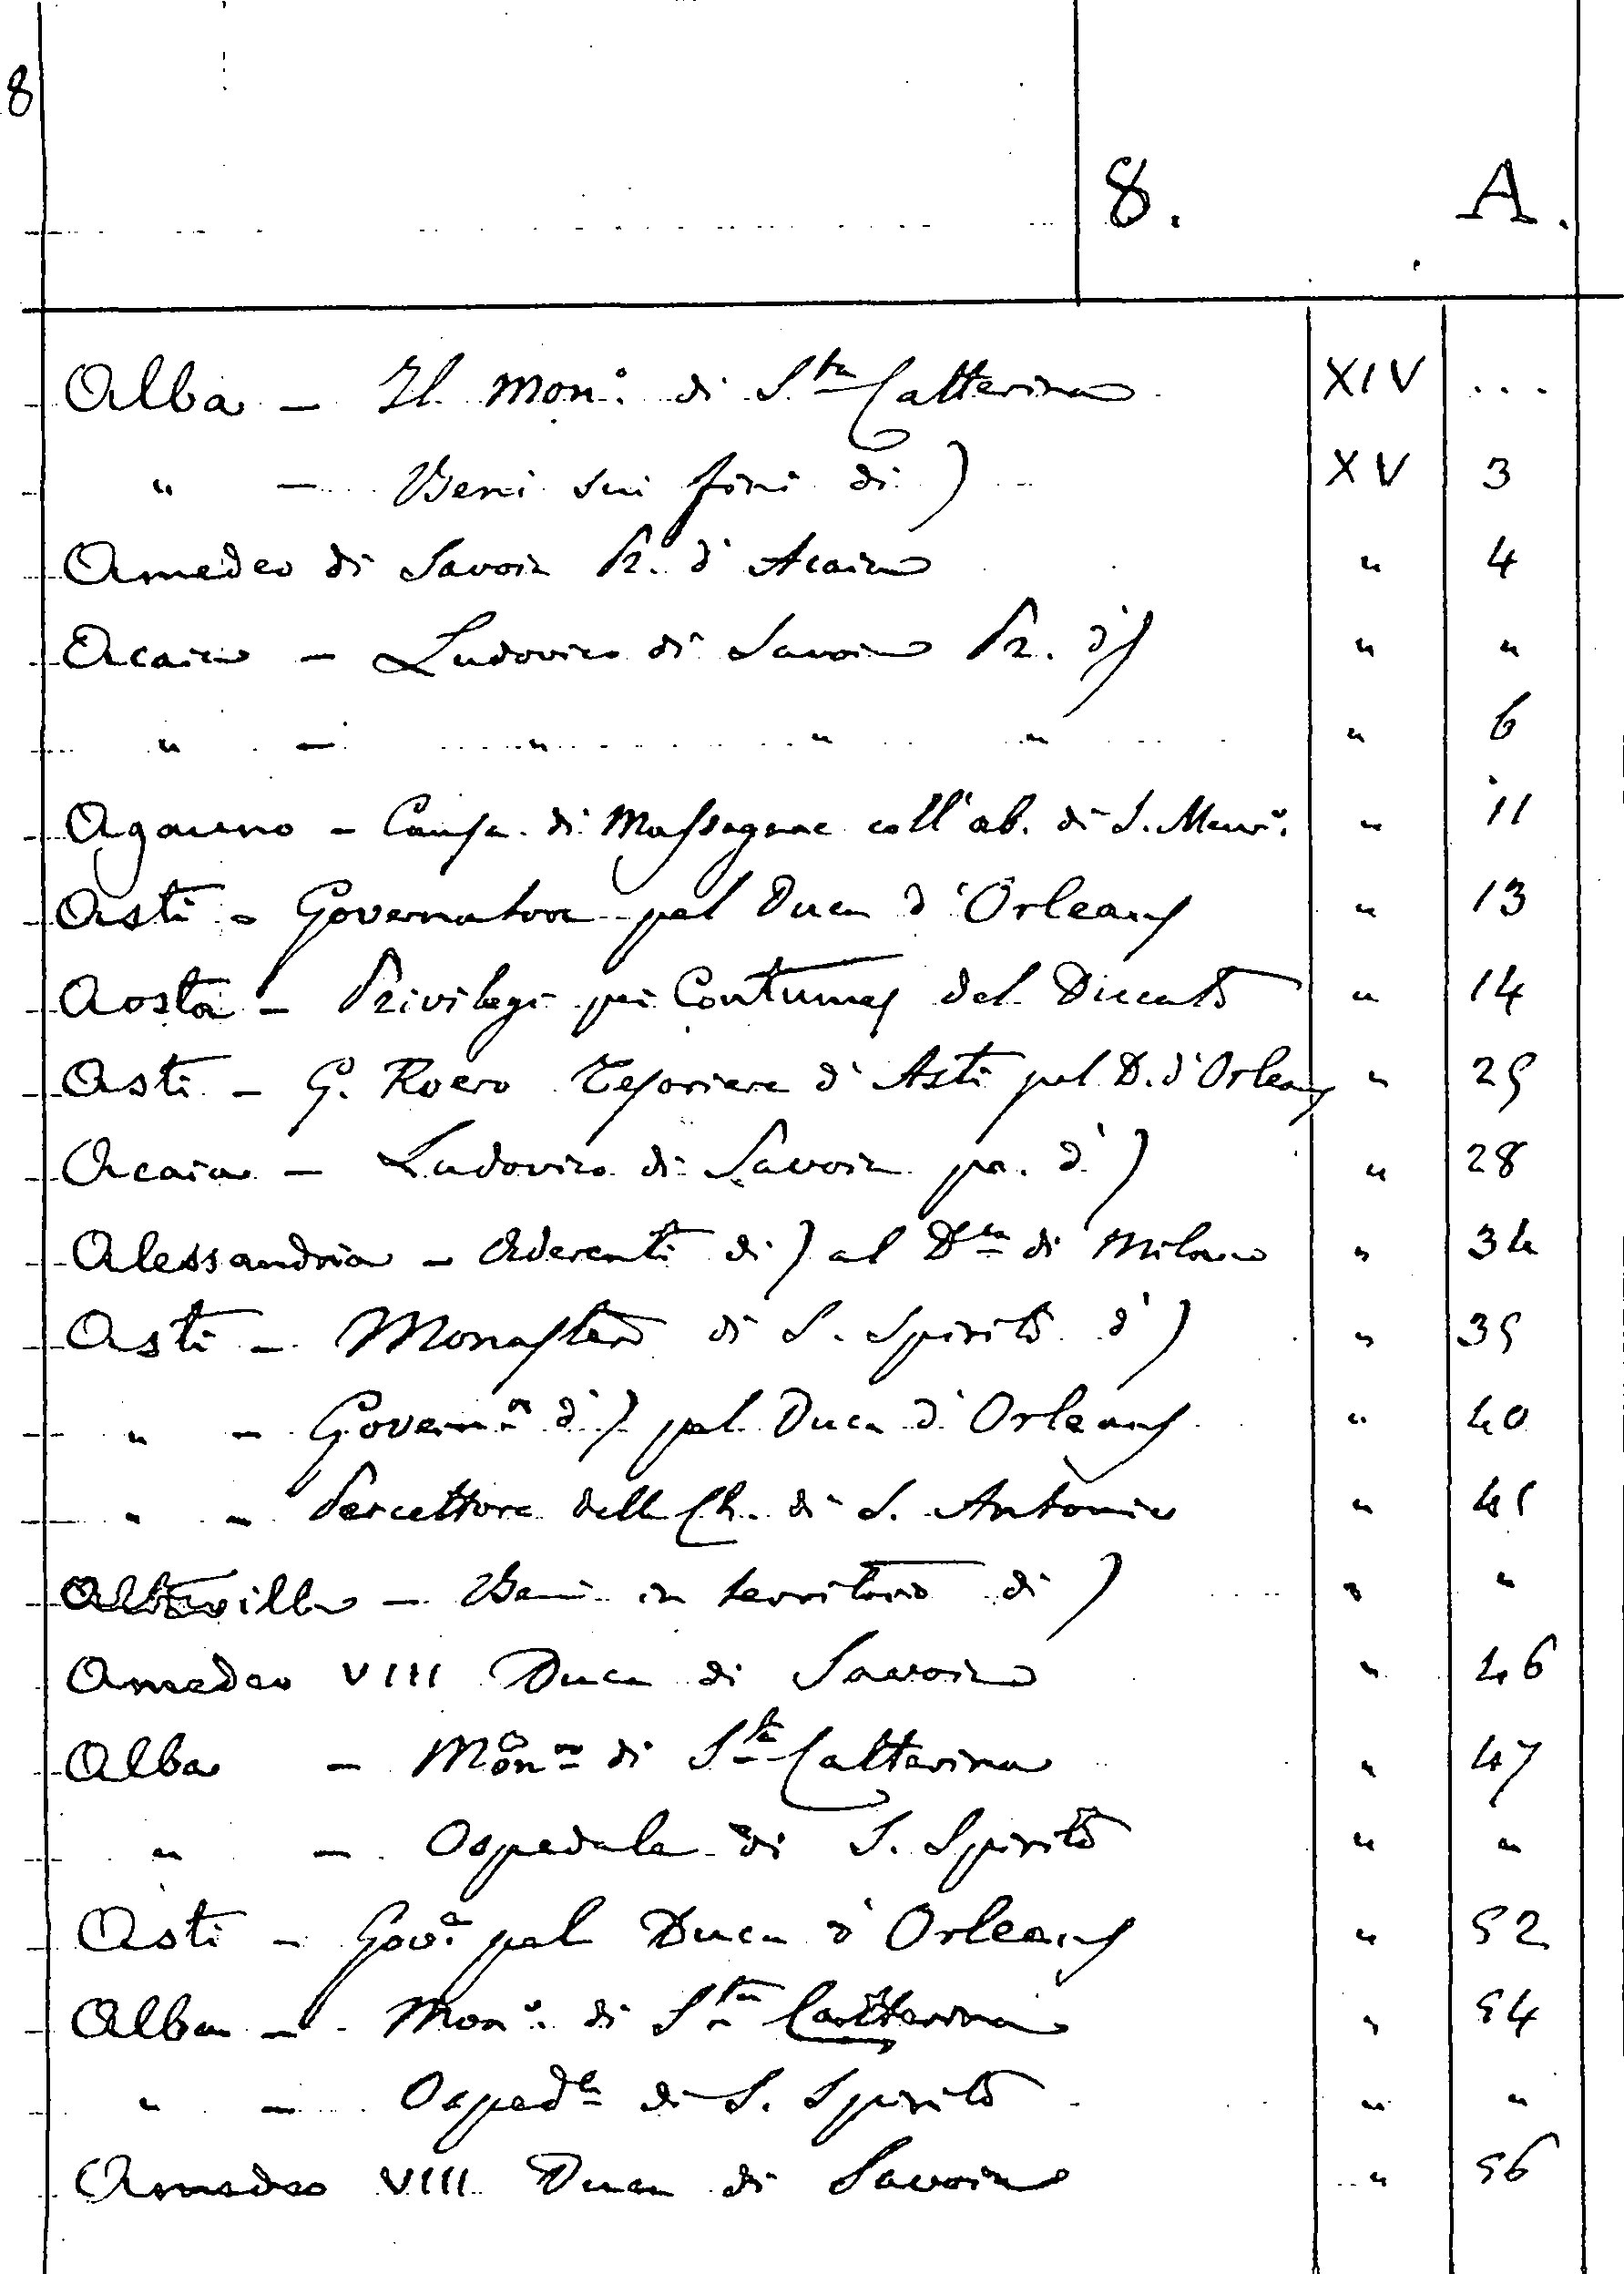 8
8. A.
Alba – Il Mon.º di S.ta Catterina XIV ...
" – Beni sui fini di ) XV 3
Amedeo di Savoia Pr. d'Acaia " 4
Acaia – Ludovico di Savoia Pr. d') " "
" – " " " " 6
Agauno – Causa di Massognac coll'ab. di S. Maur.º " 11
Asti – Governatore pel Duca d'Orleans " 13
Aosta – Privilegi pei Contumaj del Ducato " 14
Asti – G. Roero Tesoriere d'Asti pel D. d'Orleans " 25
Acaia – Ludovico di Savoia pr. d') " 28
Alessandria – Aderenti di ) al D.ca di Milano " 34
Asti – Monastero di S. Spirito d') " 35
" – Govern.re d') pel Duca d'Orleans " 40
" – Percettore delle Ch. di S. Antonio " 45
Altavilla – Beni in territorio di ) " "
Amedeo VIII Duca di Savoia " 46
Alba – Mon.ro di S.ta Catterina " 47
" – Ospedale di S. Spirito " "
Asti – Gov.e pel Duca d'Orleans " 52
Alba – Mon.º di S.ta Catterina " 54
" – Osped.le di S. Spirito " "
Amedeo VIII Duca di Savoia " 56